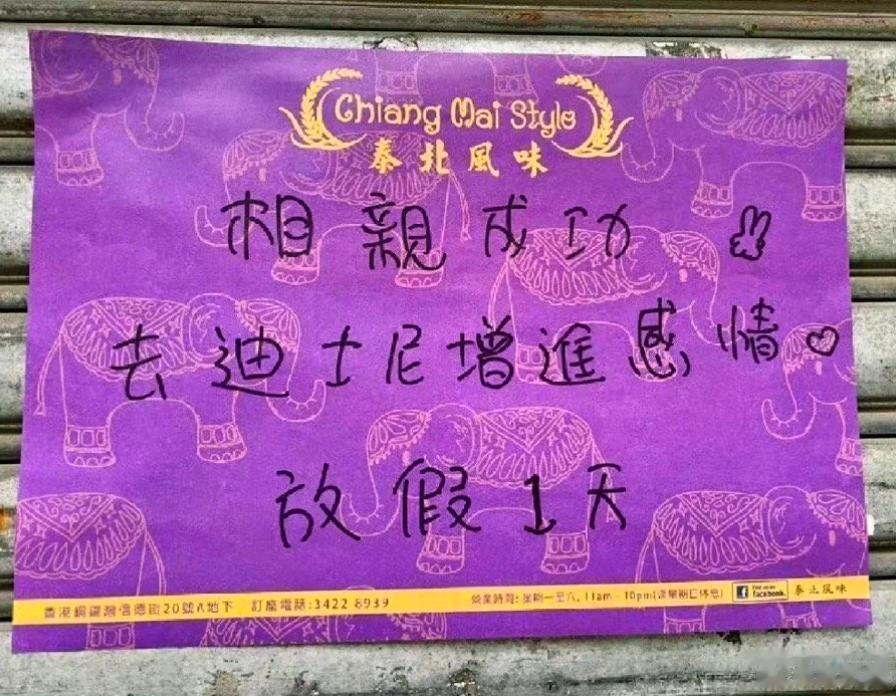 Chiang Mai Style
泰北風味
相親成功
去迪士尼增進感情♡
放假1天
香港銅鑼灣信德街20號A地下 訂座電話:3422 8939
營業時間: 星期一至六, 11am - 10pm(逢星期日休息) Find us on facebook. 泰北風味